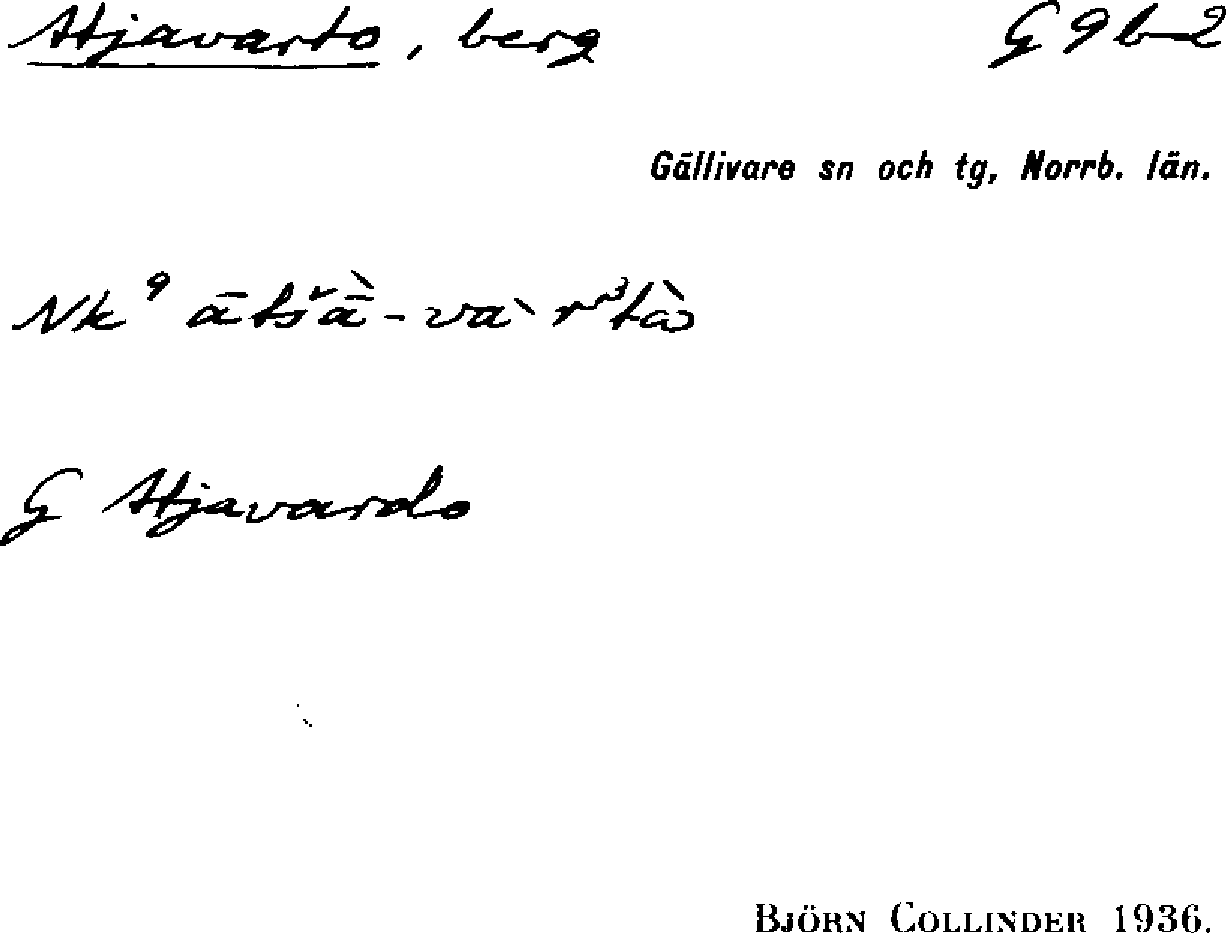 Atjavarto, berg G 9 b 2
Gällivare sn och tg, Norrb. län.
Nk 9 ātšā̀-vàr³tå̀
G Atjavardo
BJÖRN COLLINDER 1936.